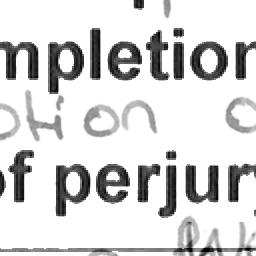 mpletion
otion
of perjury